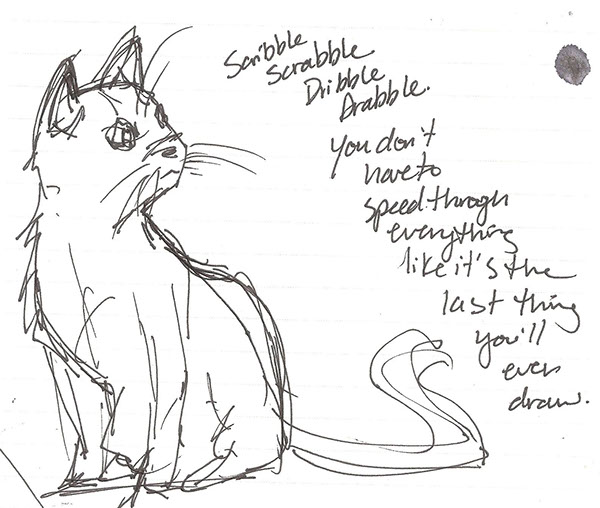 Scribble
Scrabble.
Dribble
Drabble.
You don't
have to
speed through
everything
like it's the
last thing
you'll
ever
draw.